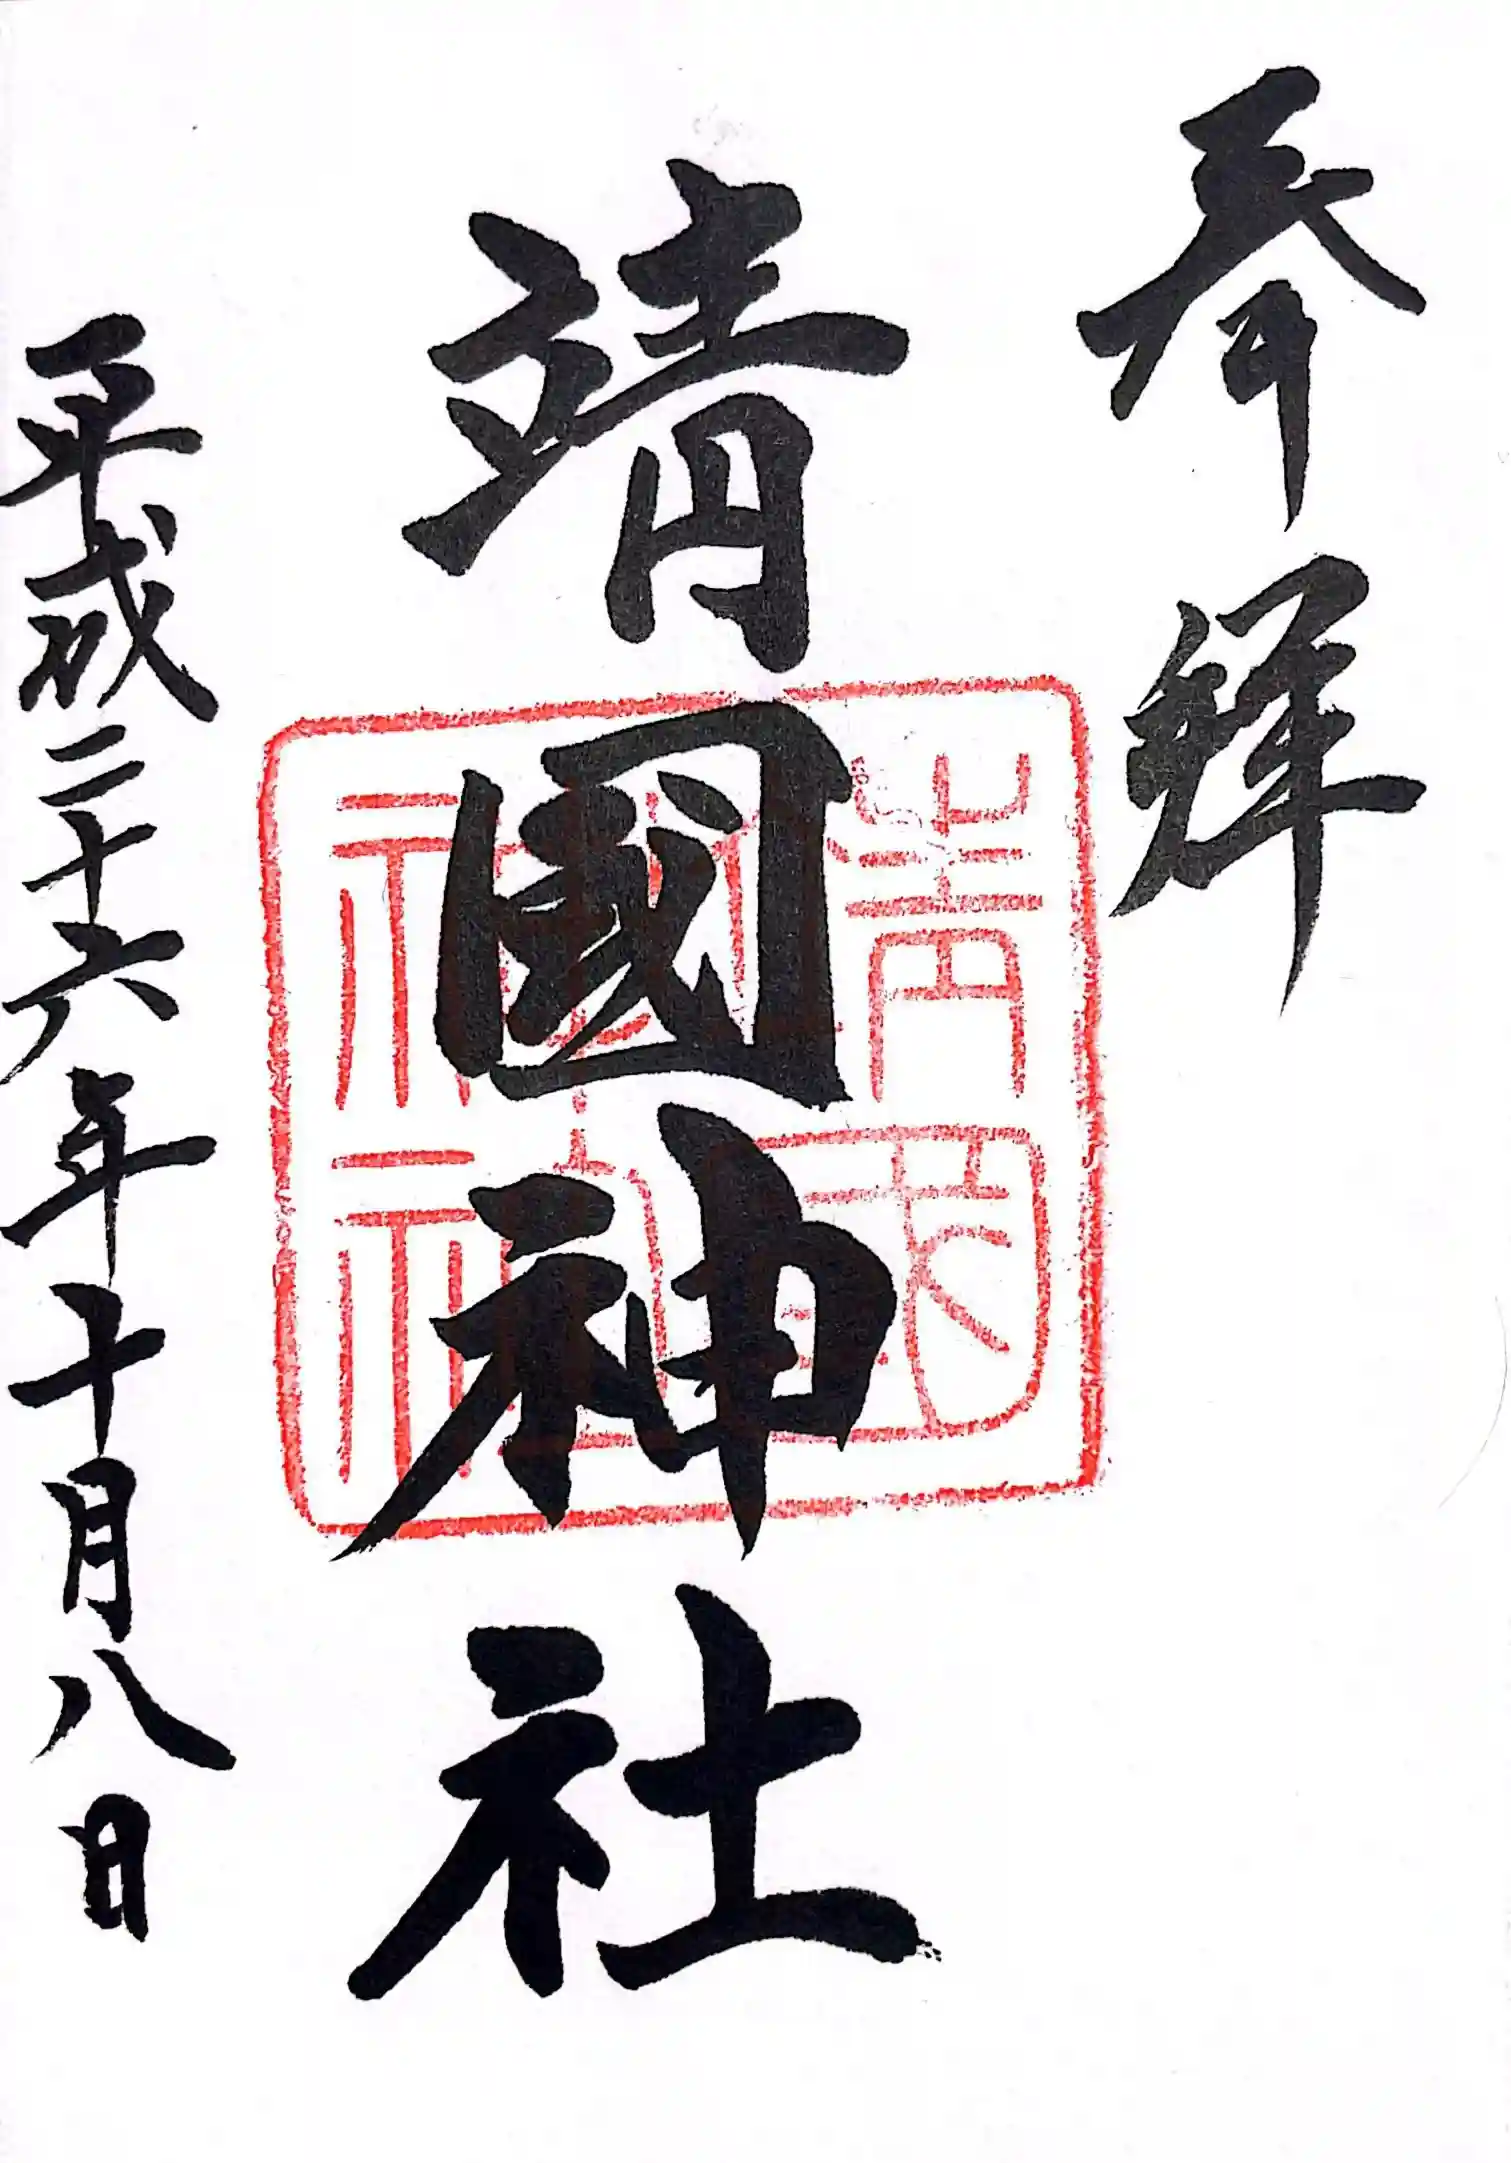 奉拝
靖國神社
靖國
神社
平成二十六年十月八日